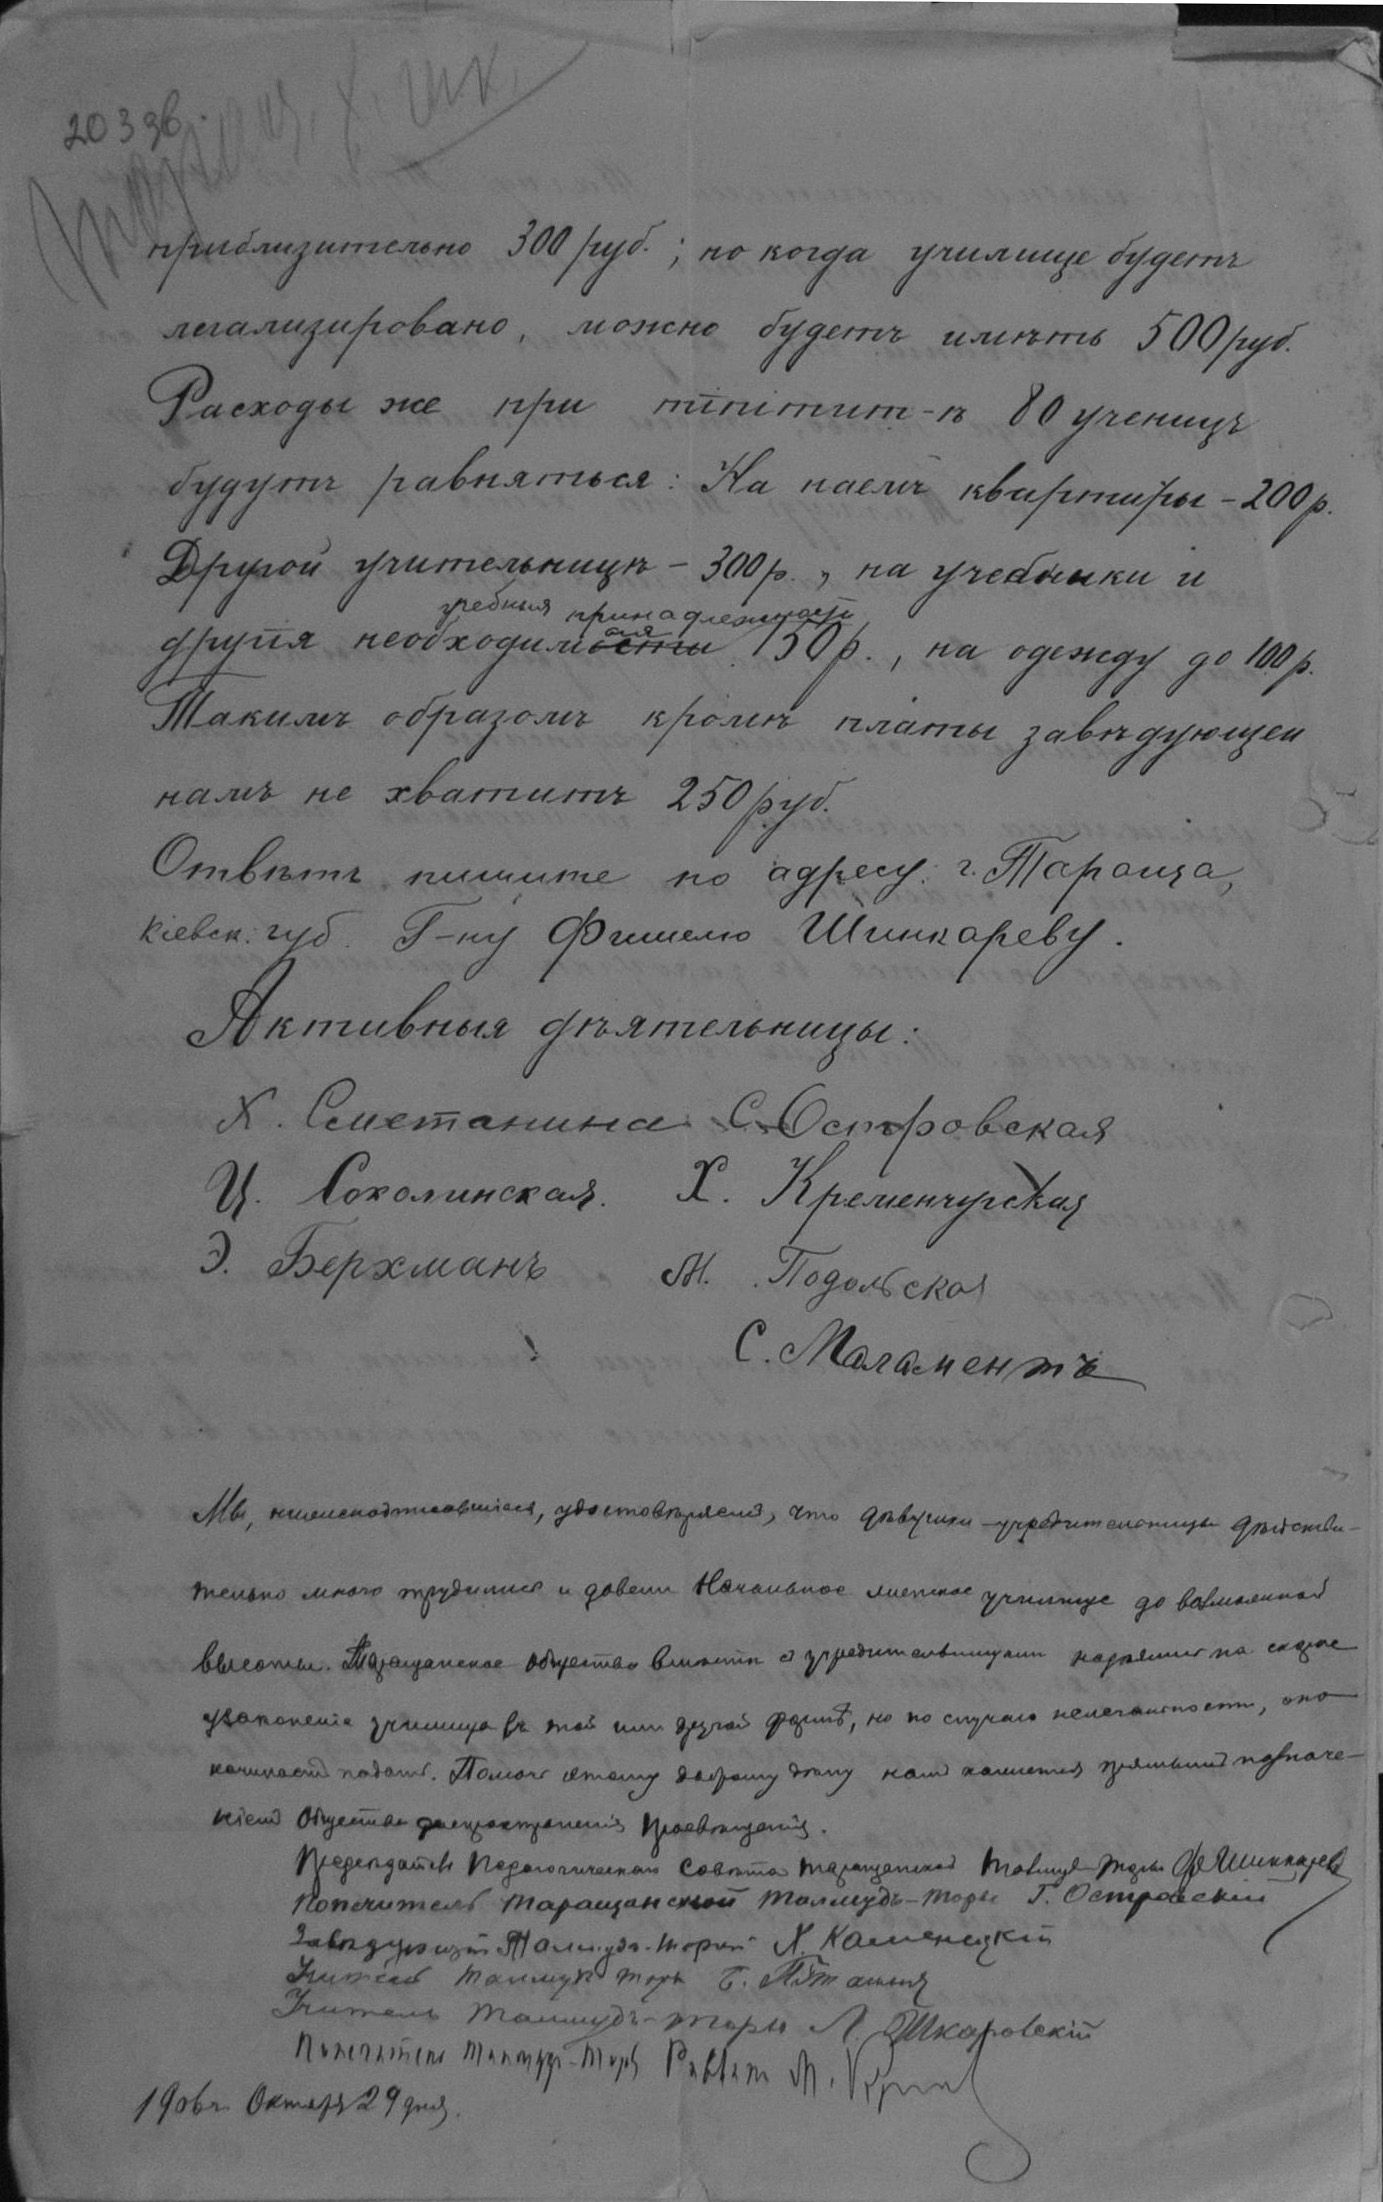 203 зв.
приблизительно 300 руб.; но когда училище будетъ
легализировано, можно будетъ имѣть 500 руб.
Расходы же при minimum-ѣ 80 ученицъ
будутъ равняться: На наемъ квартиры - 200 р.
Другой учительницѣ - 300 р., на учебники и
учебныя принадлежности
другія необходимости 150 р., на одежду до 100 р.
Такимъ образомъ кромѣ платы завѣдующей
намъ не хватитъ 250 руб.
Отвѣтъ пишите по адресу: г. Тараща,
Кіевск. губ. Г-ну Фишелю Шинкареву.
Активныя дѣятельницы:
Х. Сметанина С. Островская
Ц. Соколинская. Х. Кременчугская
Э. Берхманъ М. Подольская
С. Маламентъ
Мы, нижеподписавшіеся, удостовѣряемъ, что дѣвушки-учредительницы дѣйстви-
тельно много трудились и довели Начальное женское училище до возможной
высоты. Таращанское общество вмѣстѣ съ учредительницами надѣялись на скорое
узаконеніе училища въ той или другой формѣ, но по случаю нелегальности, оно
начинаетъ падать. Помочь этому доброму дѣлу намъ кажется прямымъ назначе-
ніемъ Общества распространенія просвѣщенія.
Предсѣдатель Педагогическаго Совѣта таращанской Талмудъ-Торы Ф. Шинкаревъ
Попечитель Таращанской Талмудъ-Торы Г. Островскій
Завѣдующій Талмудъ-Торой Х. Каменецкій
Учитель Талмудъ Торы Б.
Учитель Талмудъ-Торы Л. Шкаровскій
Попечитель Талмудъ-Торы Раввинъ М.
1906 г. Октября 29 дня.